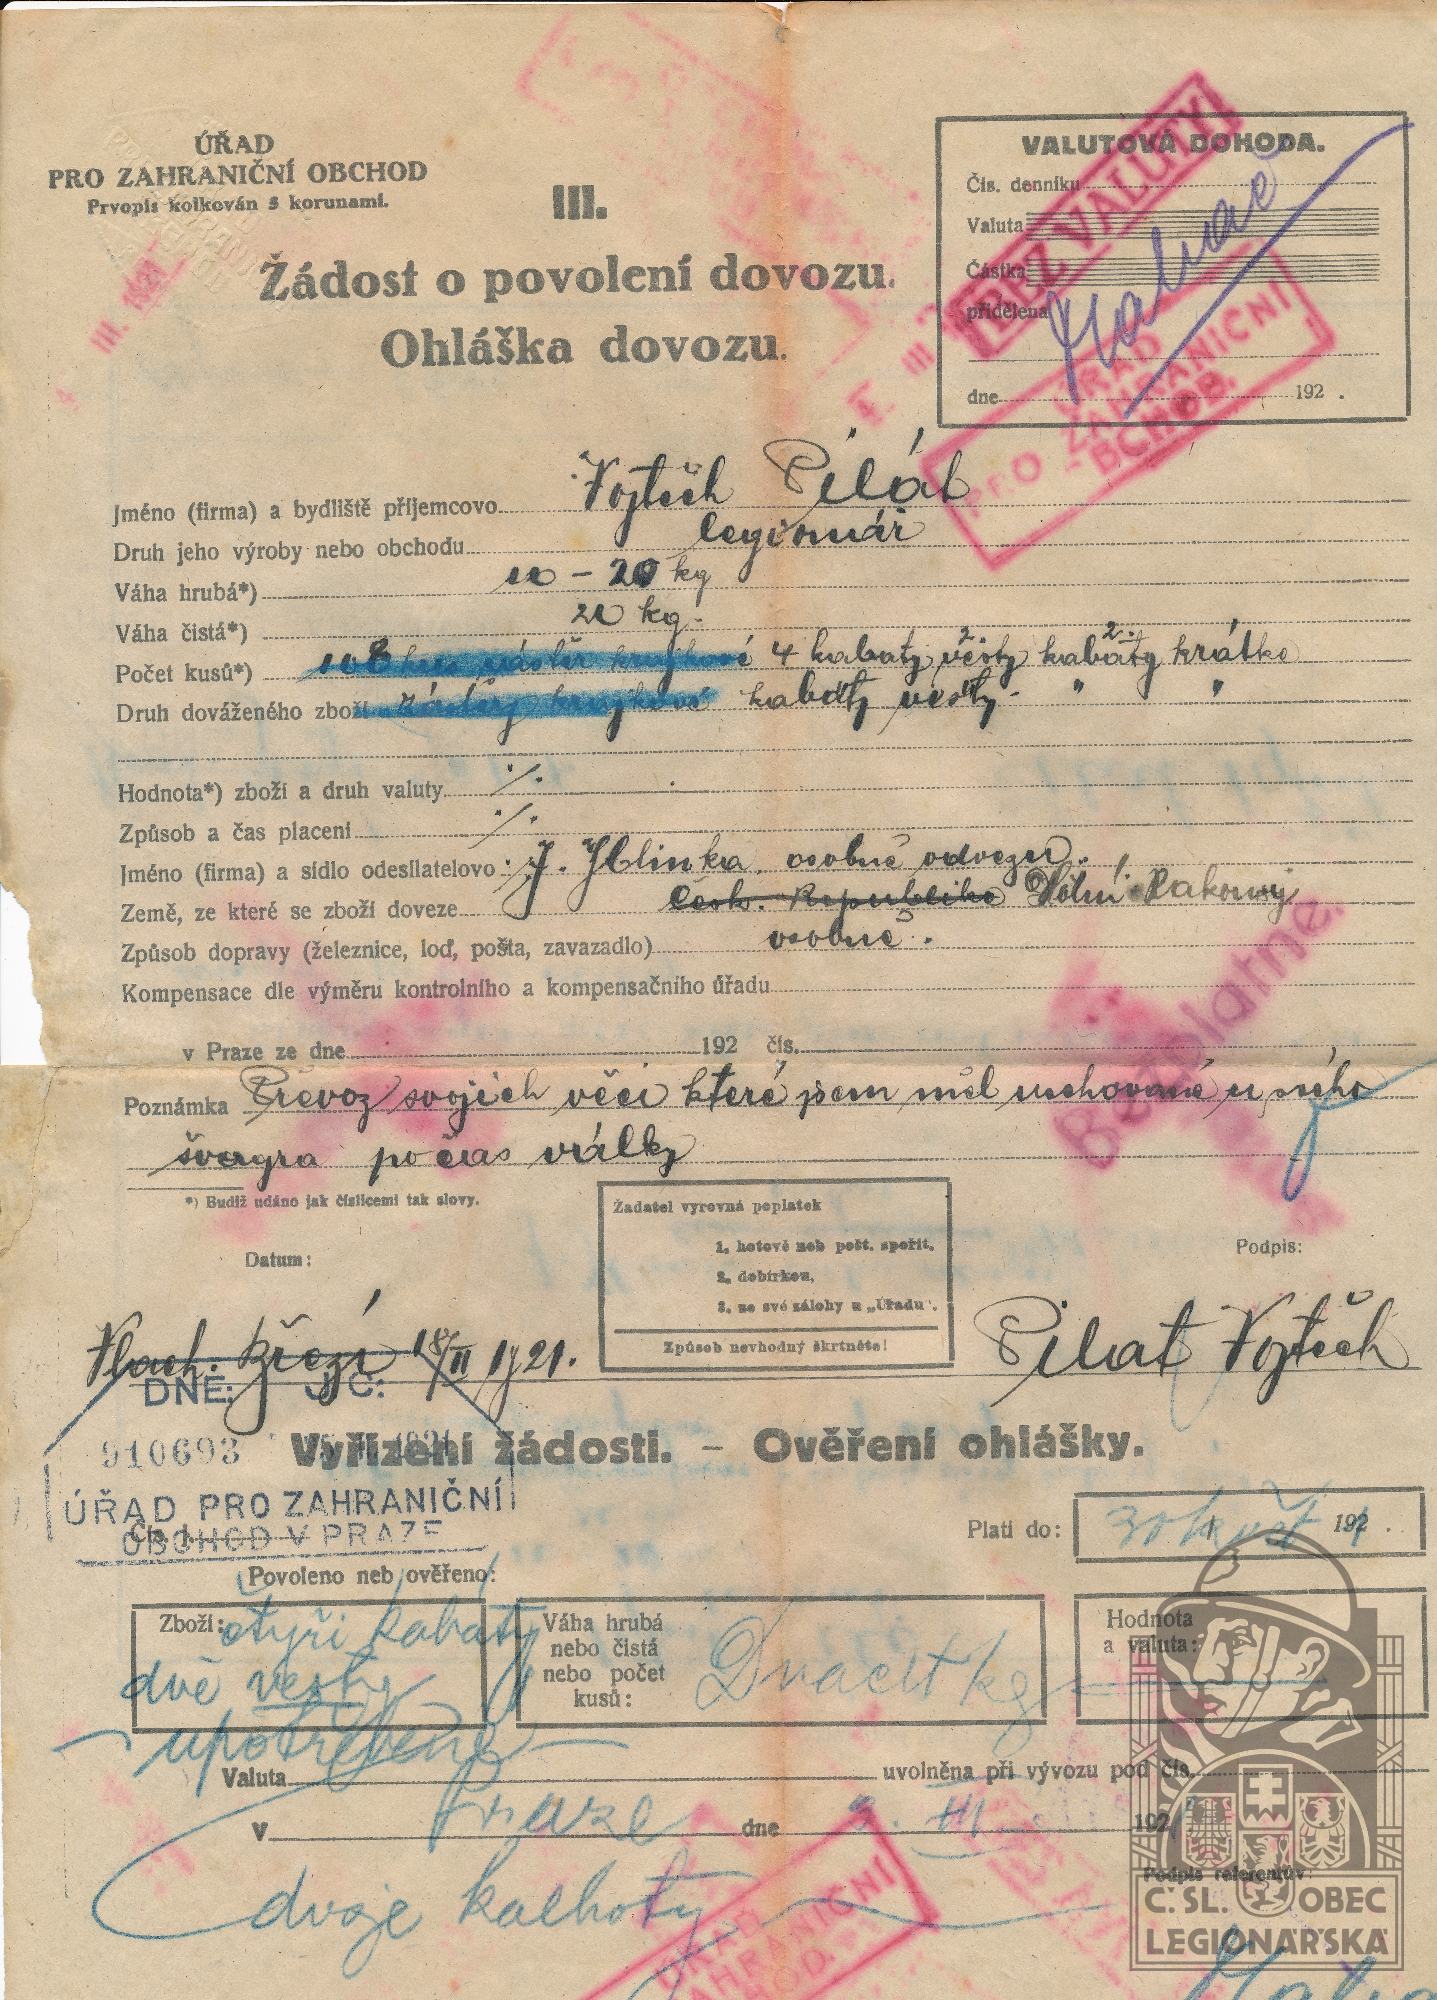 ÚŘAD
PRO ZAHRANIČNÍ OBCHOD
Prvopis kolkován 5 korunami.
III.
Žádost o povolení dovozu.
Ohláška dovozu.
VALUTOVÁ DOHODA.
Čís. denníku
Valuta
Částka
přidělena
dne 192 .
BEZ VALUTY
ÚŘAD
PRO ZAHRANIČNÍ
OBCHOD.
Jméno (firma) a bydliště příjemcovo Vojtěch Pilát
Druh jeho výroby nebo obchodu legionář
Váha hrubá*) 20 kg
Váha čistá*) 20 kg.
Počet kusů*) 4 kabaty 2 vesty 2. kabáty krátke
Druh dováženého zboží kabáty vesty " "
Hodnota*) zboží a druh valuty ./.
Způsob a čas placení ./.
Jméno (firma) a sídlo odesílatelovo J. Hlinka osobně odvezu.
Země, ze které se zboží doveze Česk. Republika Dolní Rakousy
Způsob dopravy (železnice, loď, pošta, zavazadlo) osobně.
Kompensace dle výměru kontrolního a kompensačního úřadu
v Praze ze dne 192 čís.
Bezplatně.
Poznámka Převoz svojich věci které jsem měl uschované u mého
švagra počas války
*) Budiž udáno jak číslicemi tak slovy.
Žadatel vyrovná poplatek
1. hotově neb pošt. spořit.
2. dobírkou,
3. ze své zálohy u „Úřadu".
Způsob nevhodný škrtněte!
Datum:
Podpis:
Vlach. Březí 18/II 1921.
Pilat Vojtěch
DNE: J.Č:
910693
Vyřízení žádosti. – Ověření ohlášky.
ÚŘAD PRO ZAHRANIČNÍ
OBCHOD V PRAZE
Platí do: 192 .
Povoleno neb ověřeno:
Zboží: čtyři kabáty
dvě vesty
upotřebené
Váha hrubá
nebo čistá
nebo počet
kusů: Dvacet kg
Hodnota
a valuta:
Valuta uvolněna při vývozu pod čís.
v Praze dne III 192
Podpis referentův:
dvoje kalhoty
ÚŘAD
ZAHRANIČNÍ
Č. SL. OBEC
LEGIONÁŘSKÁ